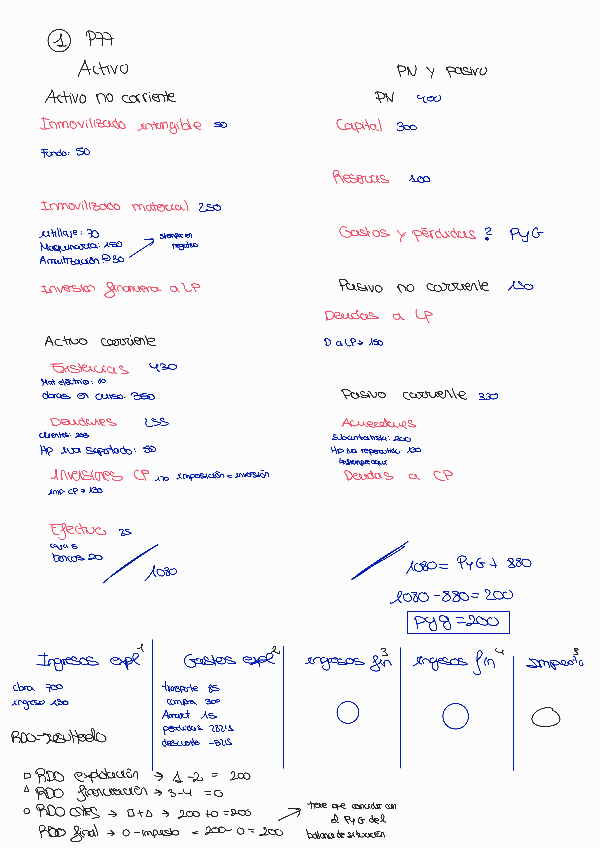 1 P77
Activo
PN y pasivo
Activo no corriente
PN 400
Inmovilizado intangible 50
Capital 300
Fondo: 50
Reservas 100
Inmovilizado material 250
utillaje: 70
Maquinaria: 150
siempre en
negativo
Gastos y pérdidas? PyG
Inversion financiera a LP
Pasivo no corriente 150
Deudas a LP
D a LP → 150
Activo corriente
Existencias 430
obras en curso: 350
Pasivo corriente 330
Deudores 255
Acreedores
Subcontratista: 200
HP iva soportado: 50
Inversiones CP no imposición = inversión
Deudas a CP
imp CP → 130
Efectivo 25
bancos 20
1080
1080 = PyG + 880
1080 - 880 = 200
PyG = 200
Ingresos expl 1
Gastos expl 2
ingresos fin 3
ingresos fin 4
impuesto 5
obra 700
ingreso 130
RDO → resultado
transporte 85
compra 300
Amort 15
perdidas
descuento
RDO explotación → 1 - 2 = 200
RDO financiación → 3 - 4 = 0
RDO → □ + △ → 200 + 0 = 200
RDO final → 0 - impuesto = 200 - 0 = 200
tiene que coincidir con
el PyG del
balance de situación